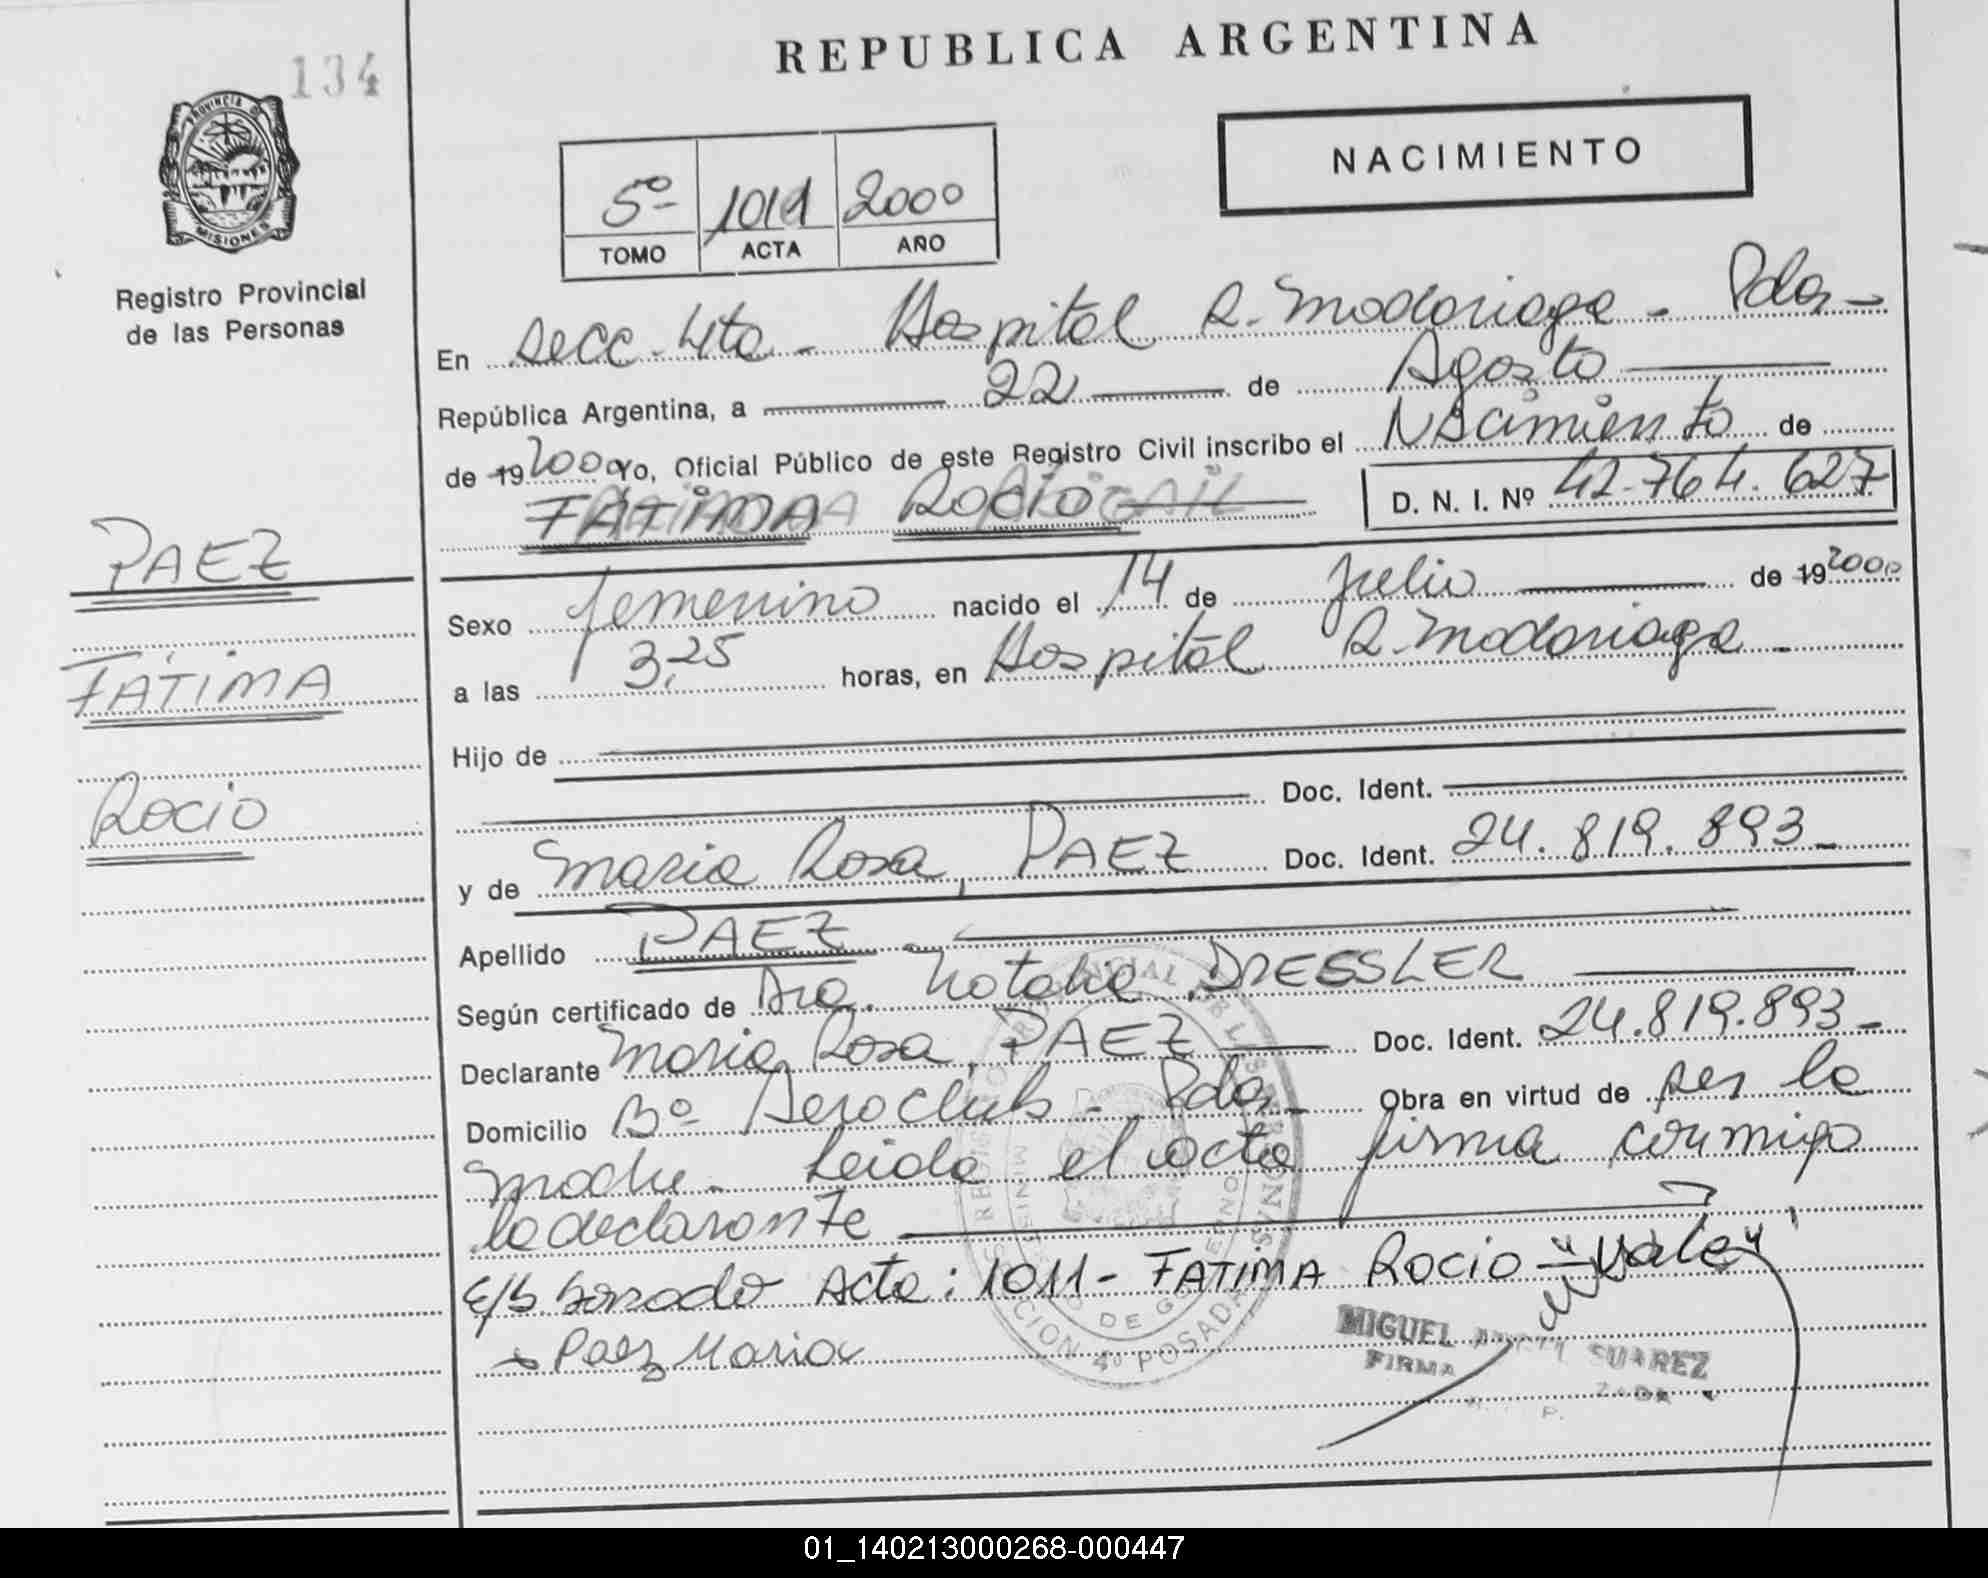 134
REPUBLICA ARGENTINA
PROVINCIA D
MISIONES
Registro Provincial
de las Personas
NACIMIENTO
5º 1011 2000
TOMO ACTA AÑO
En secc. 4ta - Hospital R. Madariaga - Pdas -
República Argentina, a 22 de Agosto
de 19 2000 Yo, Oficial Público de este Registro Civil inscribo el Nacimiento de
FÁTIMA ROCIO D. N. I. Nº 42.764.627
PAEZ
FÁTIMA
ROCIO
Sexo femenino nacido el 14 de Julio de 19 2000
a las 3,25 horas, en Hospital R. Madariaga -
Hijo de
Doc. Ident.
y de Maria Rosa, PAEZ Doc. Ident. 24.819.893 -
Apellido PAEZ -
Según certificado de Dra. Natalia DRESSLER
Declarante Maria Rosa, PAEZ Doc. Ident. 24.819.893 -
Domicilio Bº Aeroclub - Pdas - Obra en virtud de ser la
madre - Leida el acta firma conmigo
la declarante
E/S borrado Acta: 1011 - FATIMA ROCIO - "Vale"
Paez Maria
DE LAS PERSONAS
4º POSADAS
MIGUEL SUAREZ
FIRMA
01_140213000268-000447